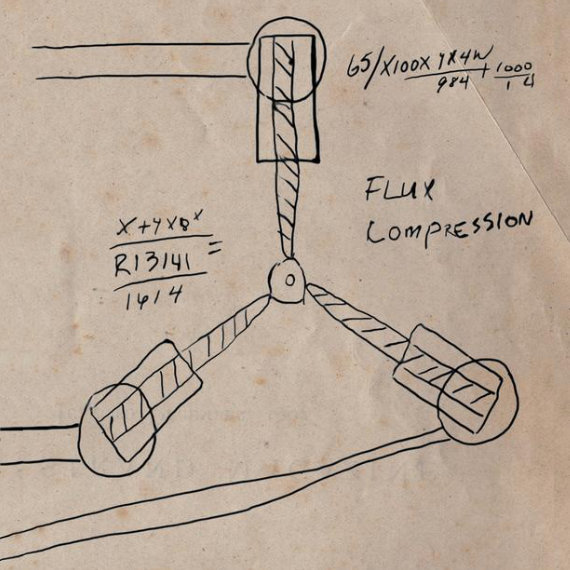 65/X100X YX4W
984 + 1000
14
FLUX
COMPRESSION
X+4X8ˣ
R13141 =
1614